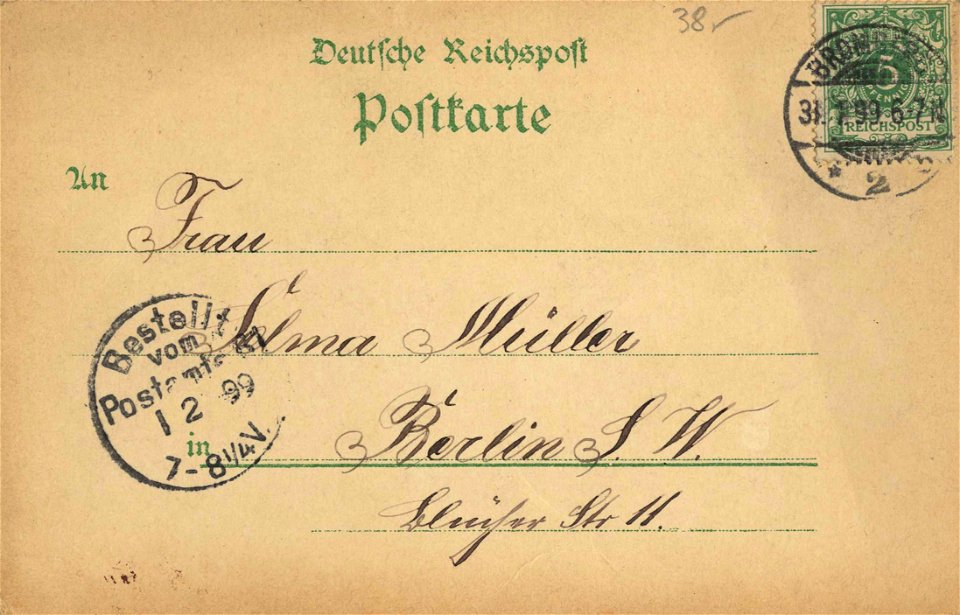 38.
Deutsche Reichspost
Postkarte
5
PFENNIG
REICHSPOST
31.1.99.6-7N.
* 2
An
Frau
Selma Müller
in Berlin S. W.
Blücher Str 11.
Bestellt
vom
Postamte 61
1 2 99
7-8¼V.